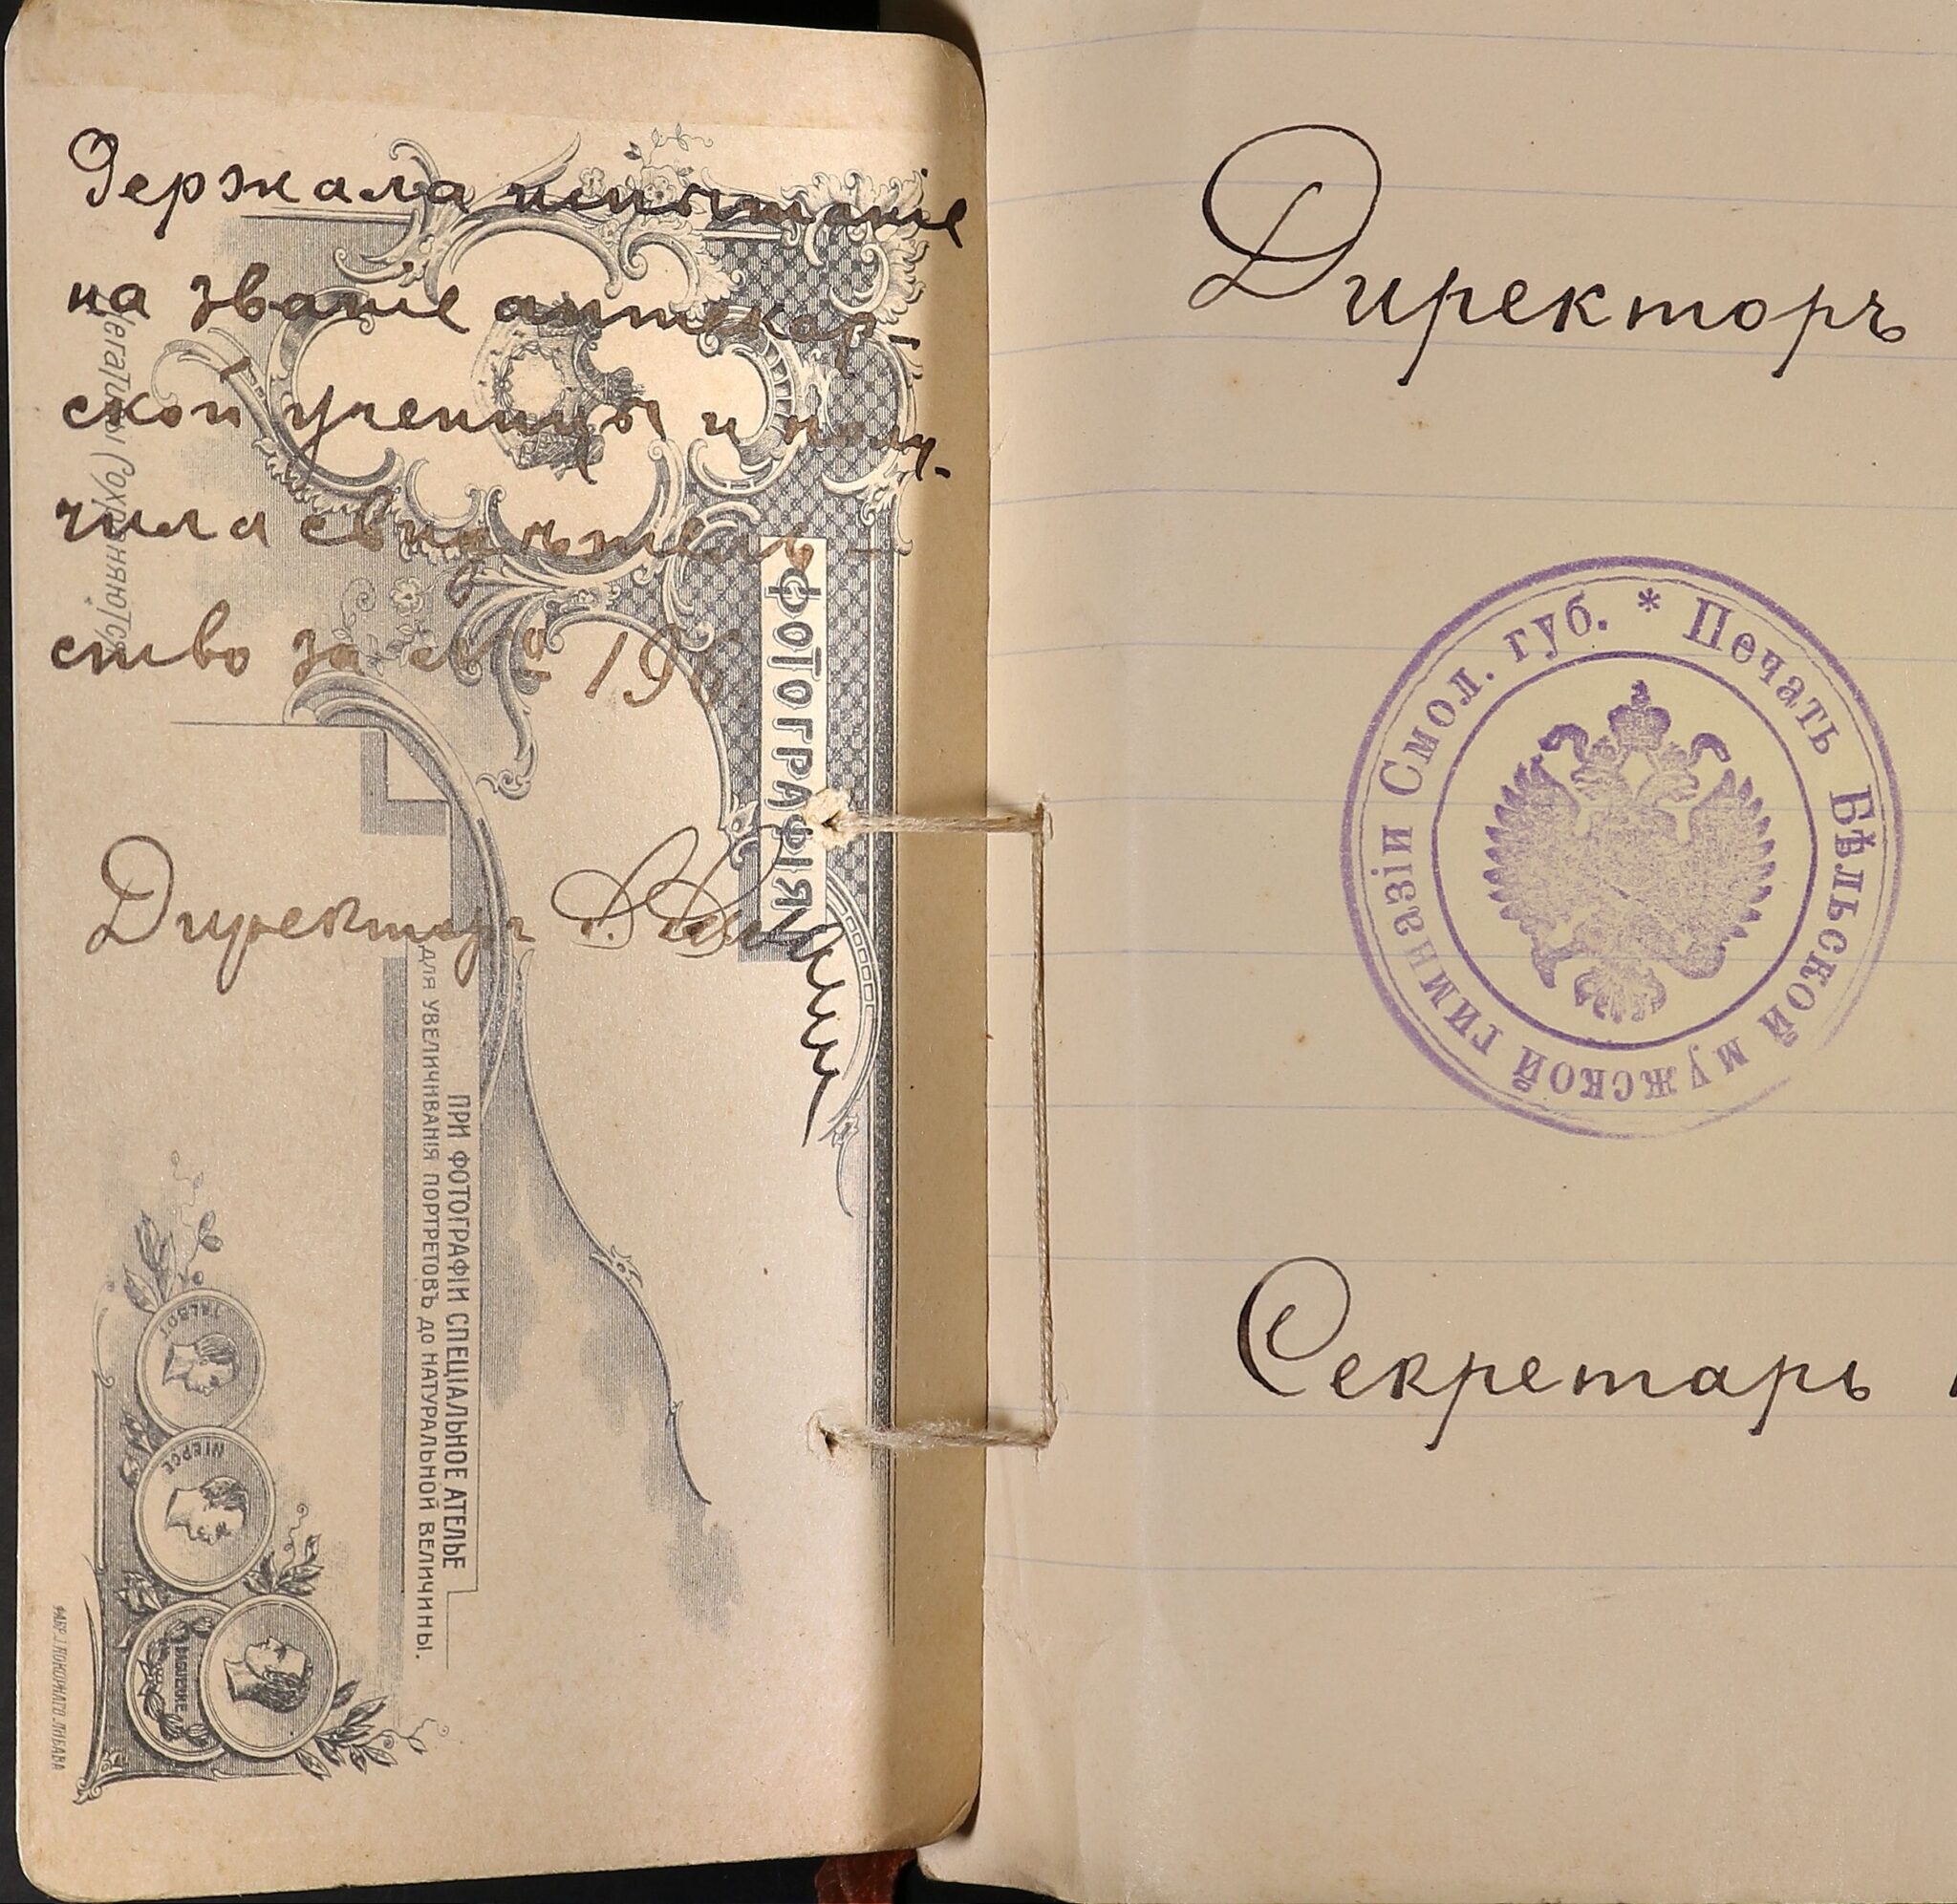 Держала испытаніе
на званіе аптекар-
ской ученицы и полу-
чила свидѣтель-
ство за № 196
Директоръ
Негативы сохраняются
ФОТОГРАФІЯ
ПРИ ФОТОГРАФІИ СПЕЦІАЛЬНОЕ АТЕЛЬЕ
ДЛЯ УВЕЛИЧИВАНІЯ ПОРТРЕТОВЪ ДО НАТУРАЛЬНОЙ ВЕЛИЧИНЫ.
TALBOT
NIEPCE
DAGUERRE
Директоръ
* Печать Бѣльской мужской гимназіи Смол. губ.
Секретарь